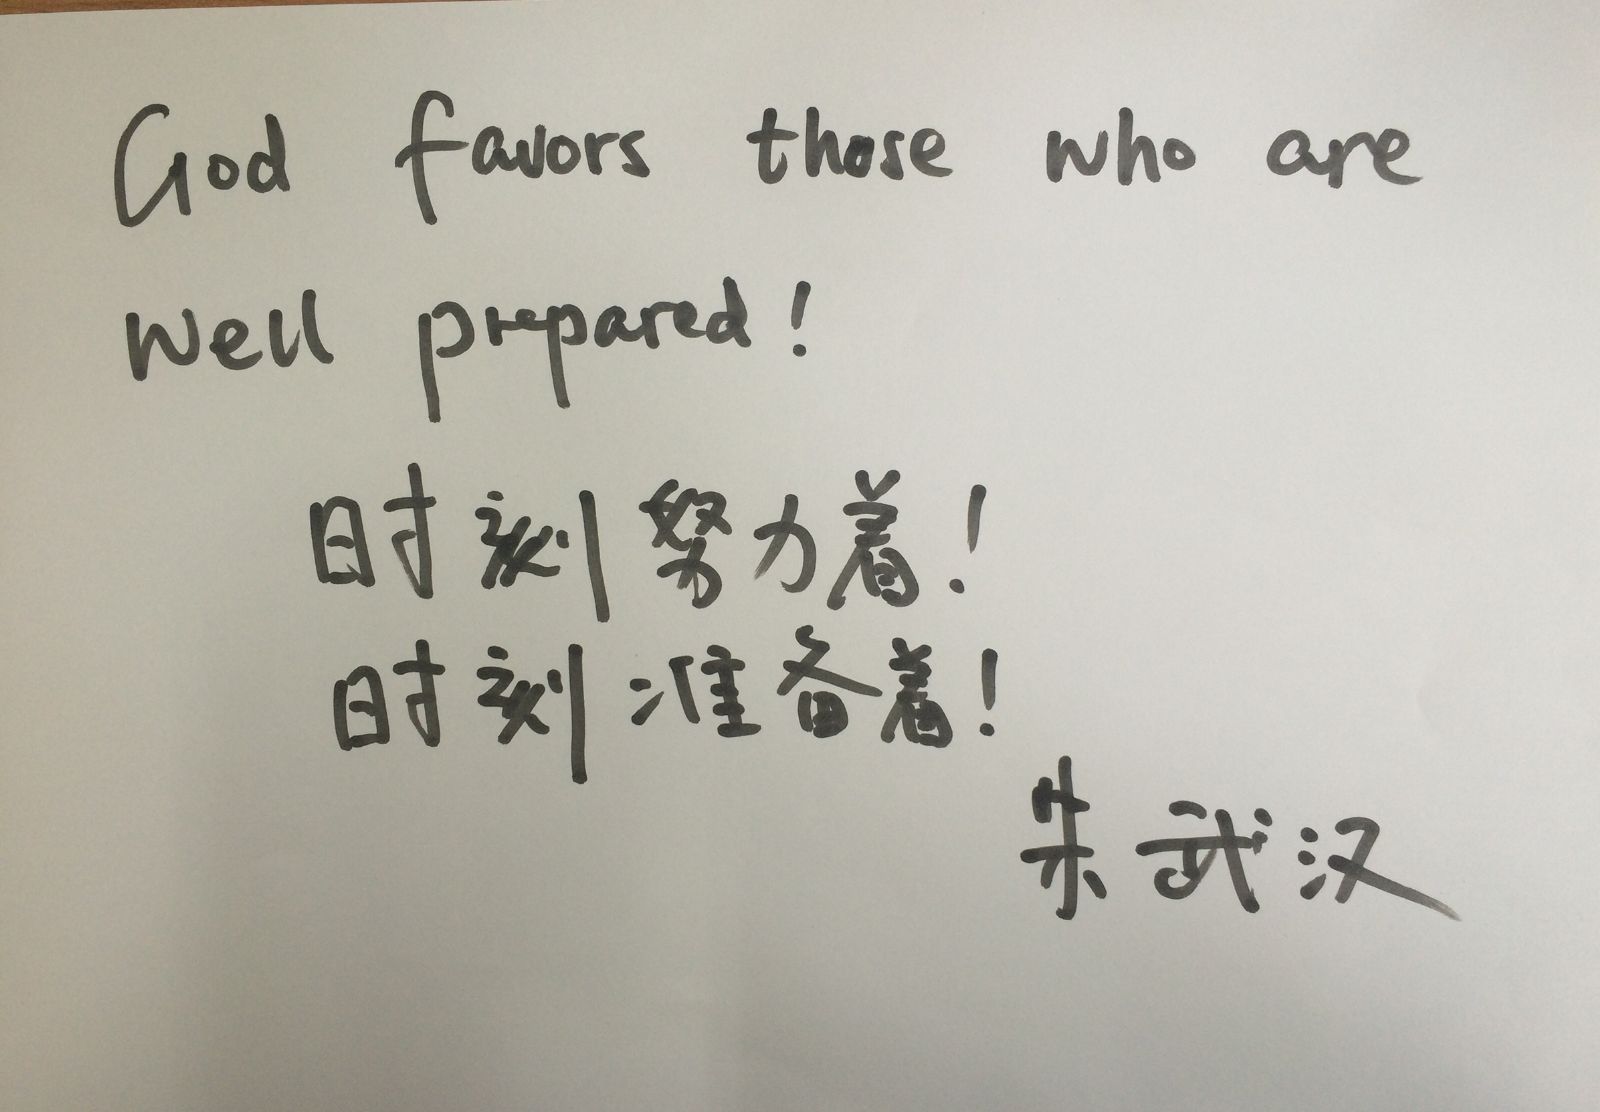 God favors those who are
well prepared!
时刻努力着!
时刻准备着!
朱武汉